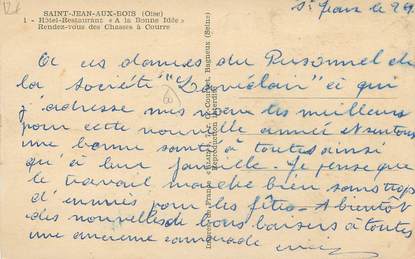 SAINT-JEAN-AUX-BOIS (Oise)
1 - Hôtel-Restaurant « A la Bonne Idée »
Rendez-vous des Chasses à Courre
St Jean le 29
A ces dames du Personnel de
la Société " " et qui
j'adresse mes vœux les meilleurs
pour cette nouvelle année et surtout
une bonne santé à toutes ainsi
qu'à leur famille. Je pense que
le travail marche bien sans trop
d'ennuis pour les fêtes. A bientôt
des nouvelles de bons baisers à toutes
une ancienne camarade
Imprimé en France
Reproduction interdite
Bagneux (Seine)